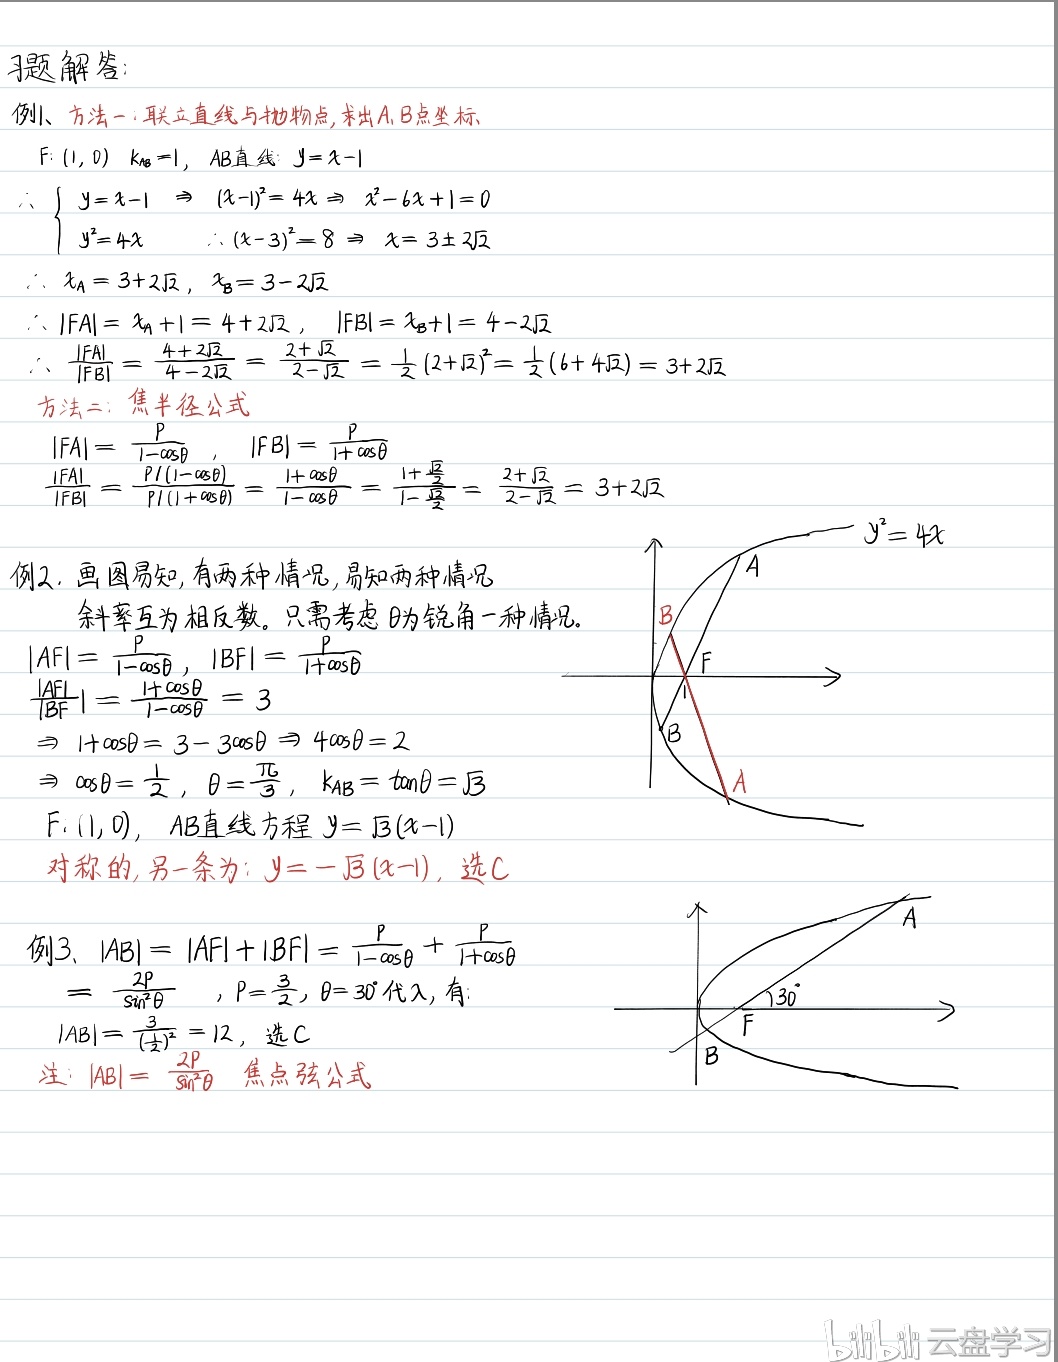 习题解答:
例1、方法一:联立直线与抛物点,求出A、B点坐标、
F:(1,0) k_AB=1, AB直线: y=x-1
∴ { y=x-1 ⇒ (x-1)²=4x ⇒ x²-6x+1=0
y²=4x ∴(x-3)²=8 ⇒ x=3±2√2
∴ x_A=3+2√2, x_B=3-2√2
∴ |FA|=x_A+1=4+2√2, |FB|=x_B+1=4-2√2
∴ |FA|/|FB| = (4+2√2)/(4-2√2) = (2+√2)/(2-√2) = 1/2(2+√2)² = 1/2(6+4√2) = 3+2√2
方法二: 焦半径公式
|FA|= P/(1-cosθ), |FB|= P/(1+cosθ)
|FA|/|FB| = (P/(1-cosθ))/(P/(1+cosθ)) = (1+cosθ)/(1-cosθ) = (1+√2/2)/(1-√2/2) = (2+√2)/(2-√2) = 3+2√2
例2. 画图易知,有两种情况,易知两种情况
斜率互为相反数。只需考虑θ为锐角一种情况。
|AF|= P/(1-cosθ), |BF|= P/(1+cosθ)
|AF|/|BF| = (1+cosθ)/(1-cosθ) = 3
⇒ 1+cosθ=3-3cosθ ⇒ 4cosθ=2
⇒ cosθ=1/2, θ=π/3, k_AB=tanθ=√3
F:(1,0), AB直线方程 y=√3(x-1)
对称的,另一条为: y=-√3(x-1), 选C
y²=4x
A
B
F
1
B
A
例3、|AB|=|AF|+|BF|= P/(1-cosθ) + P/(1+cosθ)
= 2P/sin²θ , P=3/2, θ=30°代入,有:
|AB|= 3/(1/2)² =12, 选C
注: |AB|= 2P/sin²θ 焦点弦公式
A
30°
F
B
bilibili 云盘学习